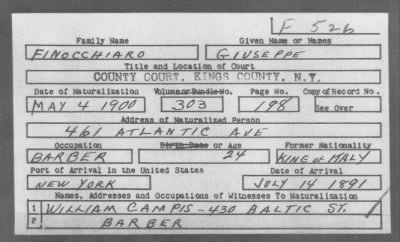 F 526
Family Name Given Name or Names
FINOCCHIARO GIUSEPPE
Title and Location of Court
COUNTY COURT, KINGS COUNTY, N.Y.
Date of Naturalization Volume or Bundle No. Page No. Copy of Record No.
MAY 4 1900 303 198 See Over
Address of Naturalized Person
461 ATLANTIC AVE
Occupation Birth Date or Age Former Nationality
BARBER 24 KING OF ITALY
Port of Arrival in the United States Date of Arrival
NEW YORK JULY 14 1891
Names, Addresses and Occupations of Witnesses To Naturalization
1 WILLIAM CAMPIS - 430 BALTIC ST.
2 BARBER